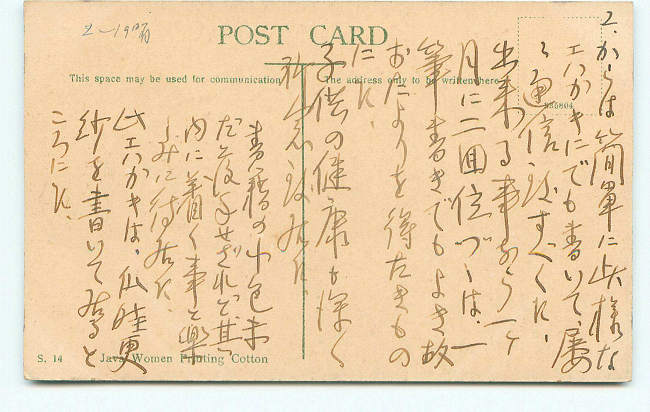 2-19前
POST CARD
This space may be used for communication
The address only to be written here
886804
2.からは簡単に此様な
エハガキにでも書いて、屡
々通信致すべく候、
出来る事なら一ケ
月に二回位づゝは、一
筆書きでもよき故
おたよりを得たきもの
に候、
子供の健康も深く
祈念致居候
書籍の小包未
だ落手せざれど、其
内に着く事と楽
しみに待居候、
此エハガキは、爪哇更
紗を書いて居ると
ころに候、
S. 14 Java Women Printing Cotton